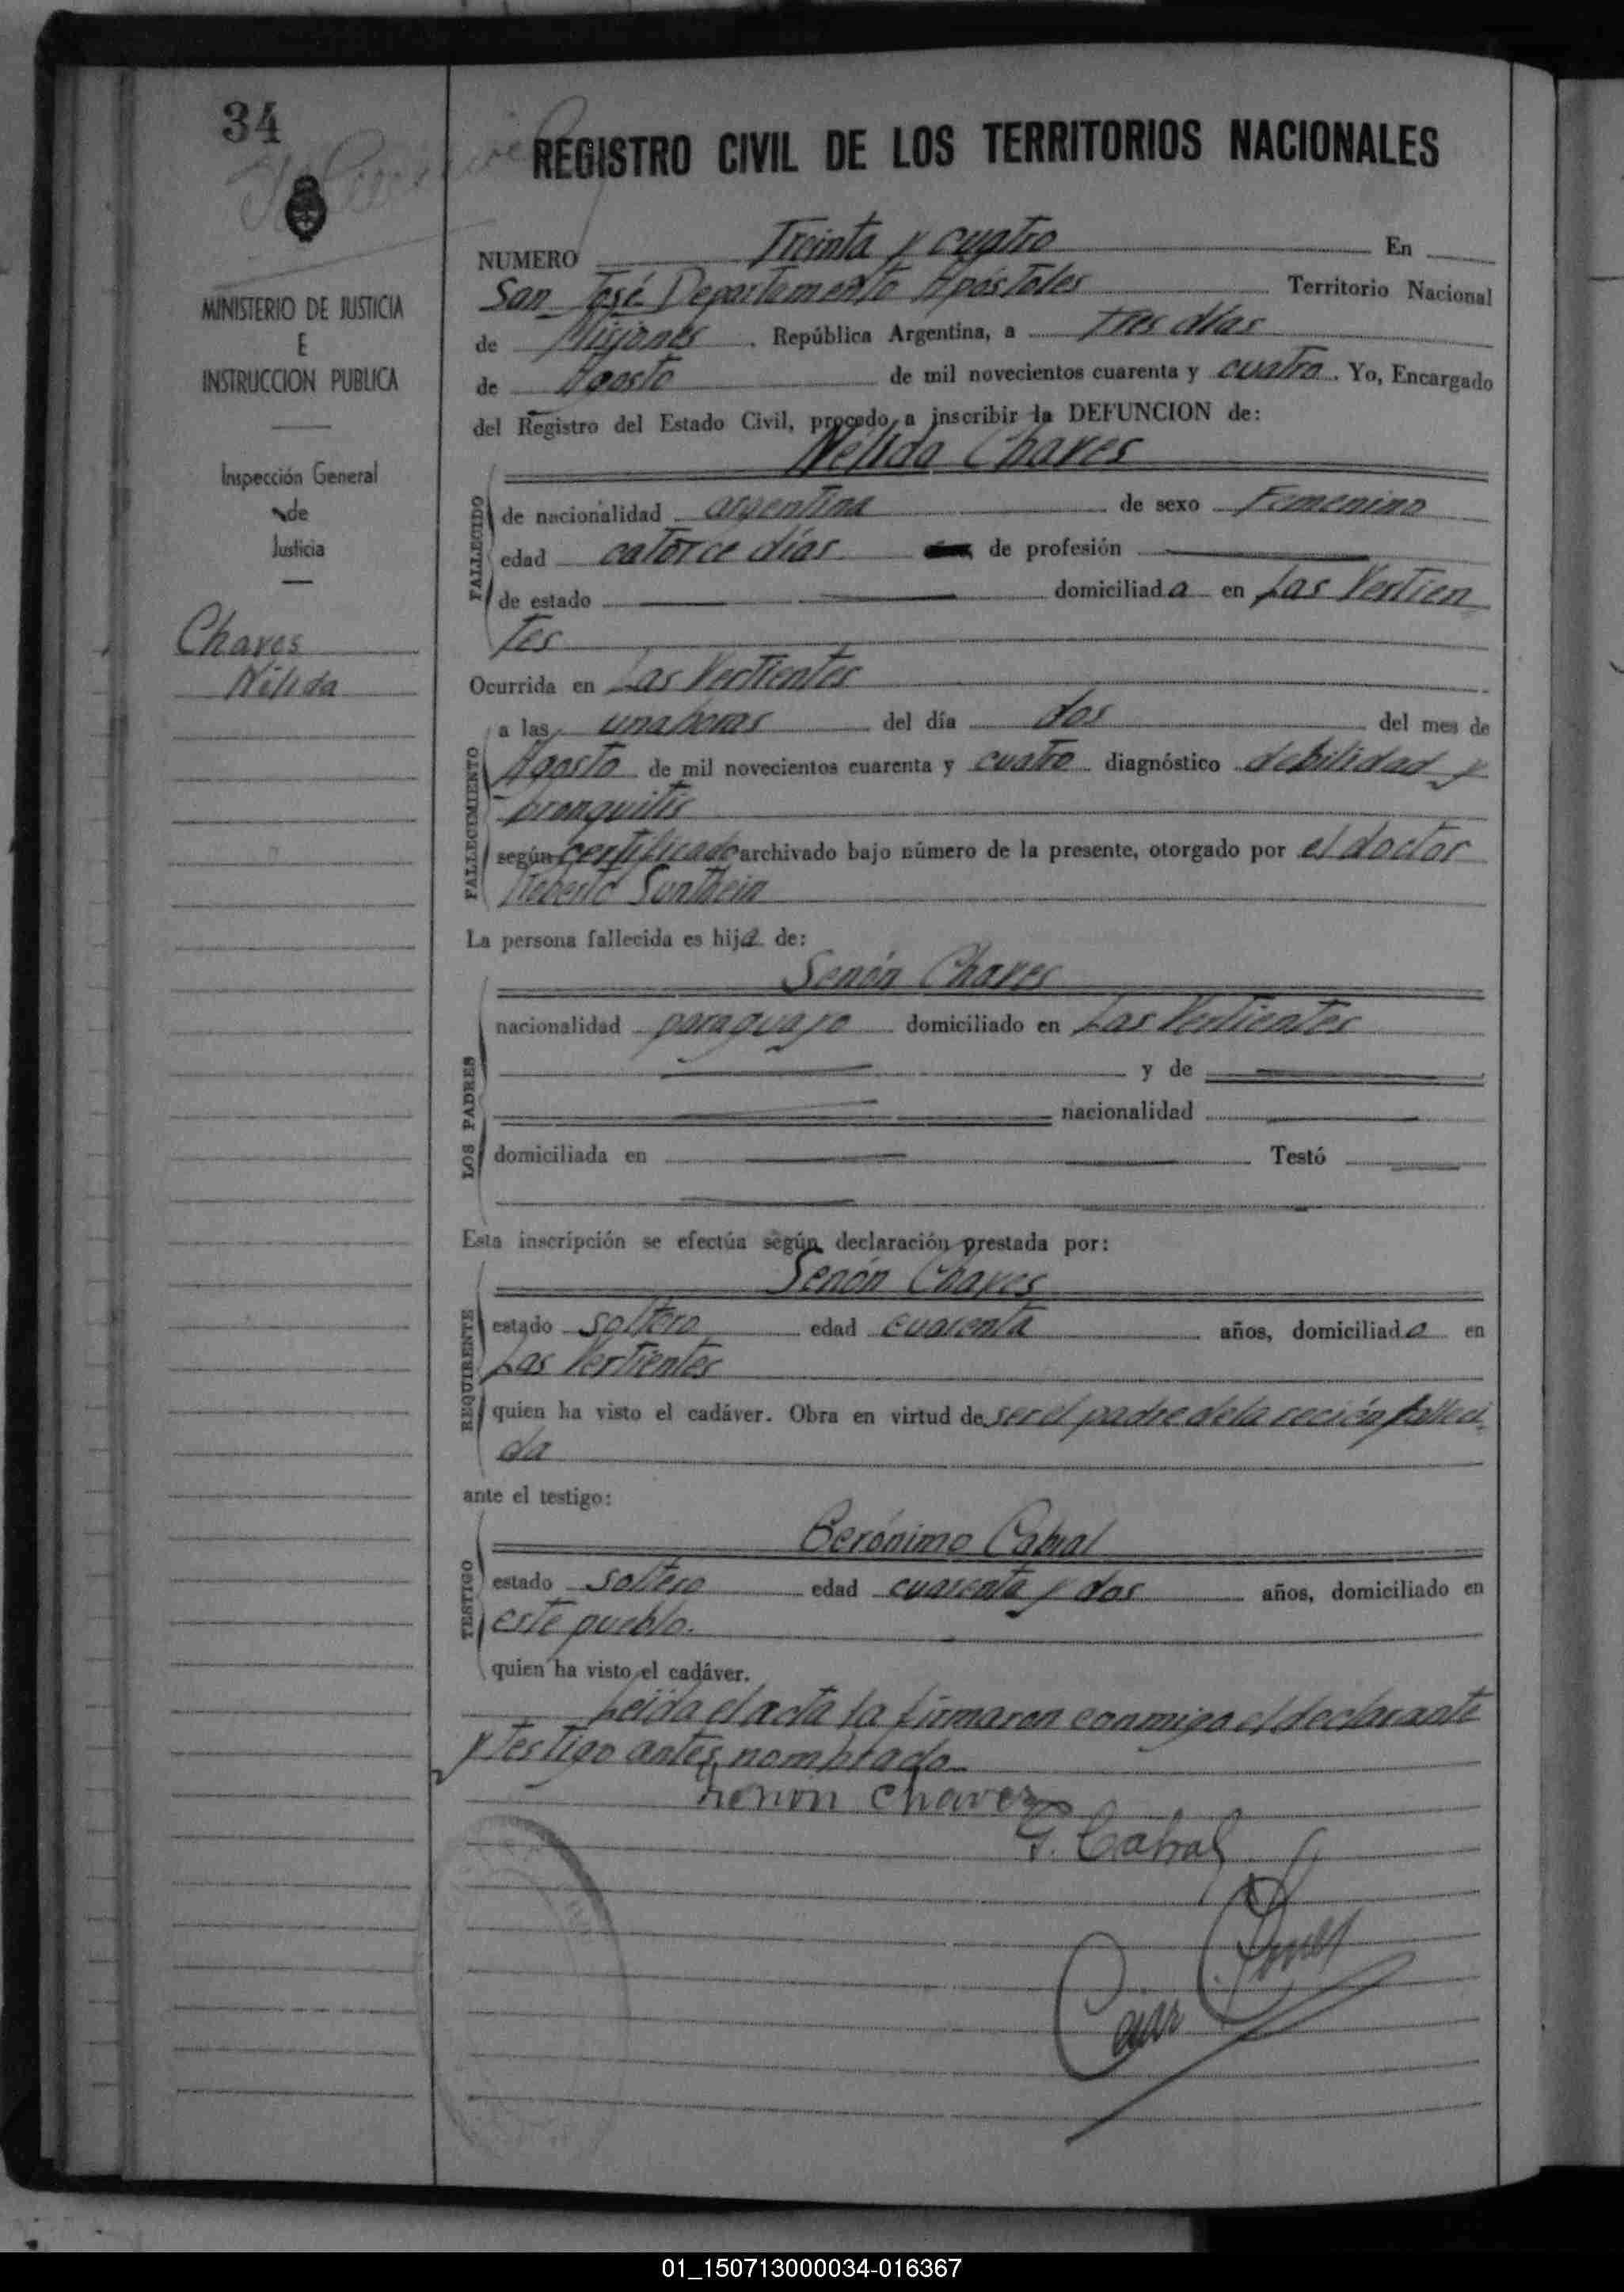 34
REGISTRO CIVIL DE LOS TERRITORIOS NACIONALES
MINISTERIO DE JUSTICIA
E
INSTRUCCION PUBLICA
Inspección General
de
Justicia
Chaves
Nélida
NUMERO Treinta y cuatro En
San José Departamento Apóstoles Territorio Nacional
de Misiones . República Argentina, a tres días
de Agosto de mil novecientos cuarenta y cuatro . Yo, Encargado
del Registro del Estado Civil, procedo a inscribir la DEFUNCION de:
Nélida Chaves
FALLECIDO
de nacionalidad argentina de sexo Femenino
edad catorce días de profesión
de estado domiciliada en Las Vertien
tes
Ocurrida en Las Vertientes
FALLECIMIENTO
a las una horas del día dos del mes de
Agosto de mil novecientos cuarenta y cuatro diagnóstico debilidad y
bronquitis
según certificado archivado bajo número de la presente, otorgado por el doctor
Roberto
La persona fallecida es hija de:
Senón Chaves
LOS PADRES
nacionalidad paraguayo domiciliado en Las Vertientes
y de
nacionalidad
domiciliada en Testó
Esta inscripción se efectúa según declaración prestada por:
Senón Chaves
REQUIRENTE
estado soltero edad cuarenta años, domiciliado en
Las Vertientes
quien ha visto el cadáver. Obra en virtud de ser el padre de la recién falleci
da
ante el testigo:
Gerónimo Cabral
TESTIGO
estado soltero edad cuarenta y dos años, domiciliado en
este pueblo.
quien ha visto el cadáver.
Leída el acta la firmaron conmigo el declarante
y testigo antes nombrado
Senon Chavez
G. Cabral
01_150713000034-016367